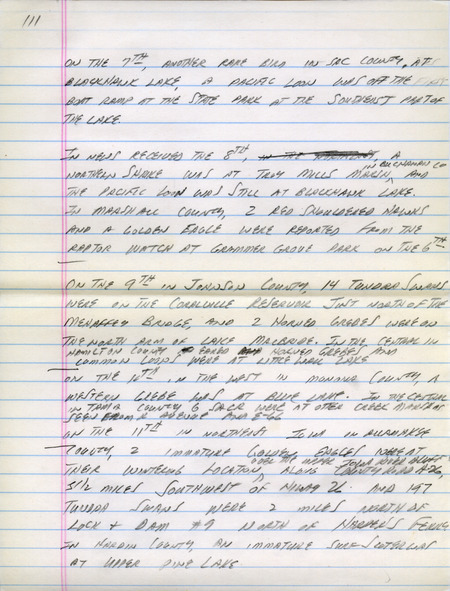 111
ON THE 7TH, ANOTHER RARE BIRD IN SAC COUNTY. AT
BLACKHAWK LAKE, A PACIFIC LOON WAS OFF THE
BOAT RAMP AT THE STATE PARK AT THE SOUTHEAST PART OF
THE LAKE.
IN NEWS RECEIVED THE 8TH, A
IN BUCHANAN CO
NORTHERN SHRIKE WAS AT TROY MILLS MARSH, AND
THE PACIFIC LOON WAS STILL AT BLACKHAWK LAKE.
IN MARSHALL COUNTY, 2 RED SHOULDERED HAWKS
AND A GOLDEN EAGLE WERE REPORTED FROM THE
RAPTOR WATCH AT GRAMMER GROVE PARK ON THE 6TH
ON THE 9TH IN JOHNSON COUNTY, 14 TUNDRA SWANS
WERE ON THE CORALVILLE RESERVOIR JUST NORTH OF THE
MEHAFFEY BRIDGE, AND 2 HORNED GREBES WERE ON
THE NORTH ARM OF LAKE MACBRIDE. IN THE CENTRAL IN
HAMILTON COUNTY, EARED HORNED GREBES AND
COMMON LOONS WERE AT LITTLE WALL LAKE
ON THE 10TH IN THE WEST IN MONONA COUNTY, A
WESTERN GREBE WAS AT BLUE LAKE. IN THE CENTRAL
IN TAMA COUNTY 6 WERE AT OTTER CREEK MARSH AT
SEEN FROM AVENUE AND
ON THE 11TH IN NORTHEAST IOWA IN ALLAMAKEE
COUNTY, 2 IMMATURE GOLDEN EAGLES WERE AT
OVER THE UPPER IOWA RIVER BLUFFS
THEIR WINTERING LOCATION, ALONG COUNTY ROAD A26,
3 1/2 MILES SOUTHWEST OF HIWAY 26 AND 197
TUNDRA SWANS WERE 2 MILES NORTH OF
LOCK + DAM #9 NORTH OF HARPER'S FERRY
IN HARDIN COUNTY, AN IMMATURE SURF SCOTER WAS
AT UPPER PINE LAKE